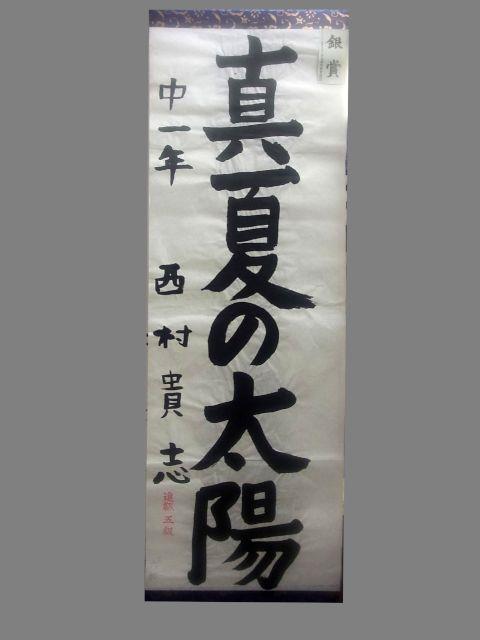 銀賞
真夏の太陽
中一年 西村貴志